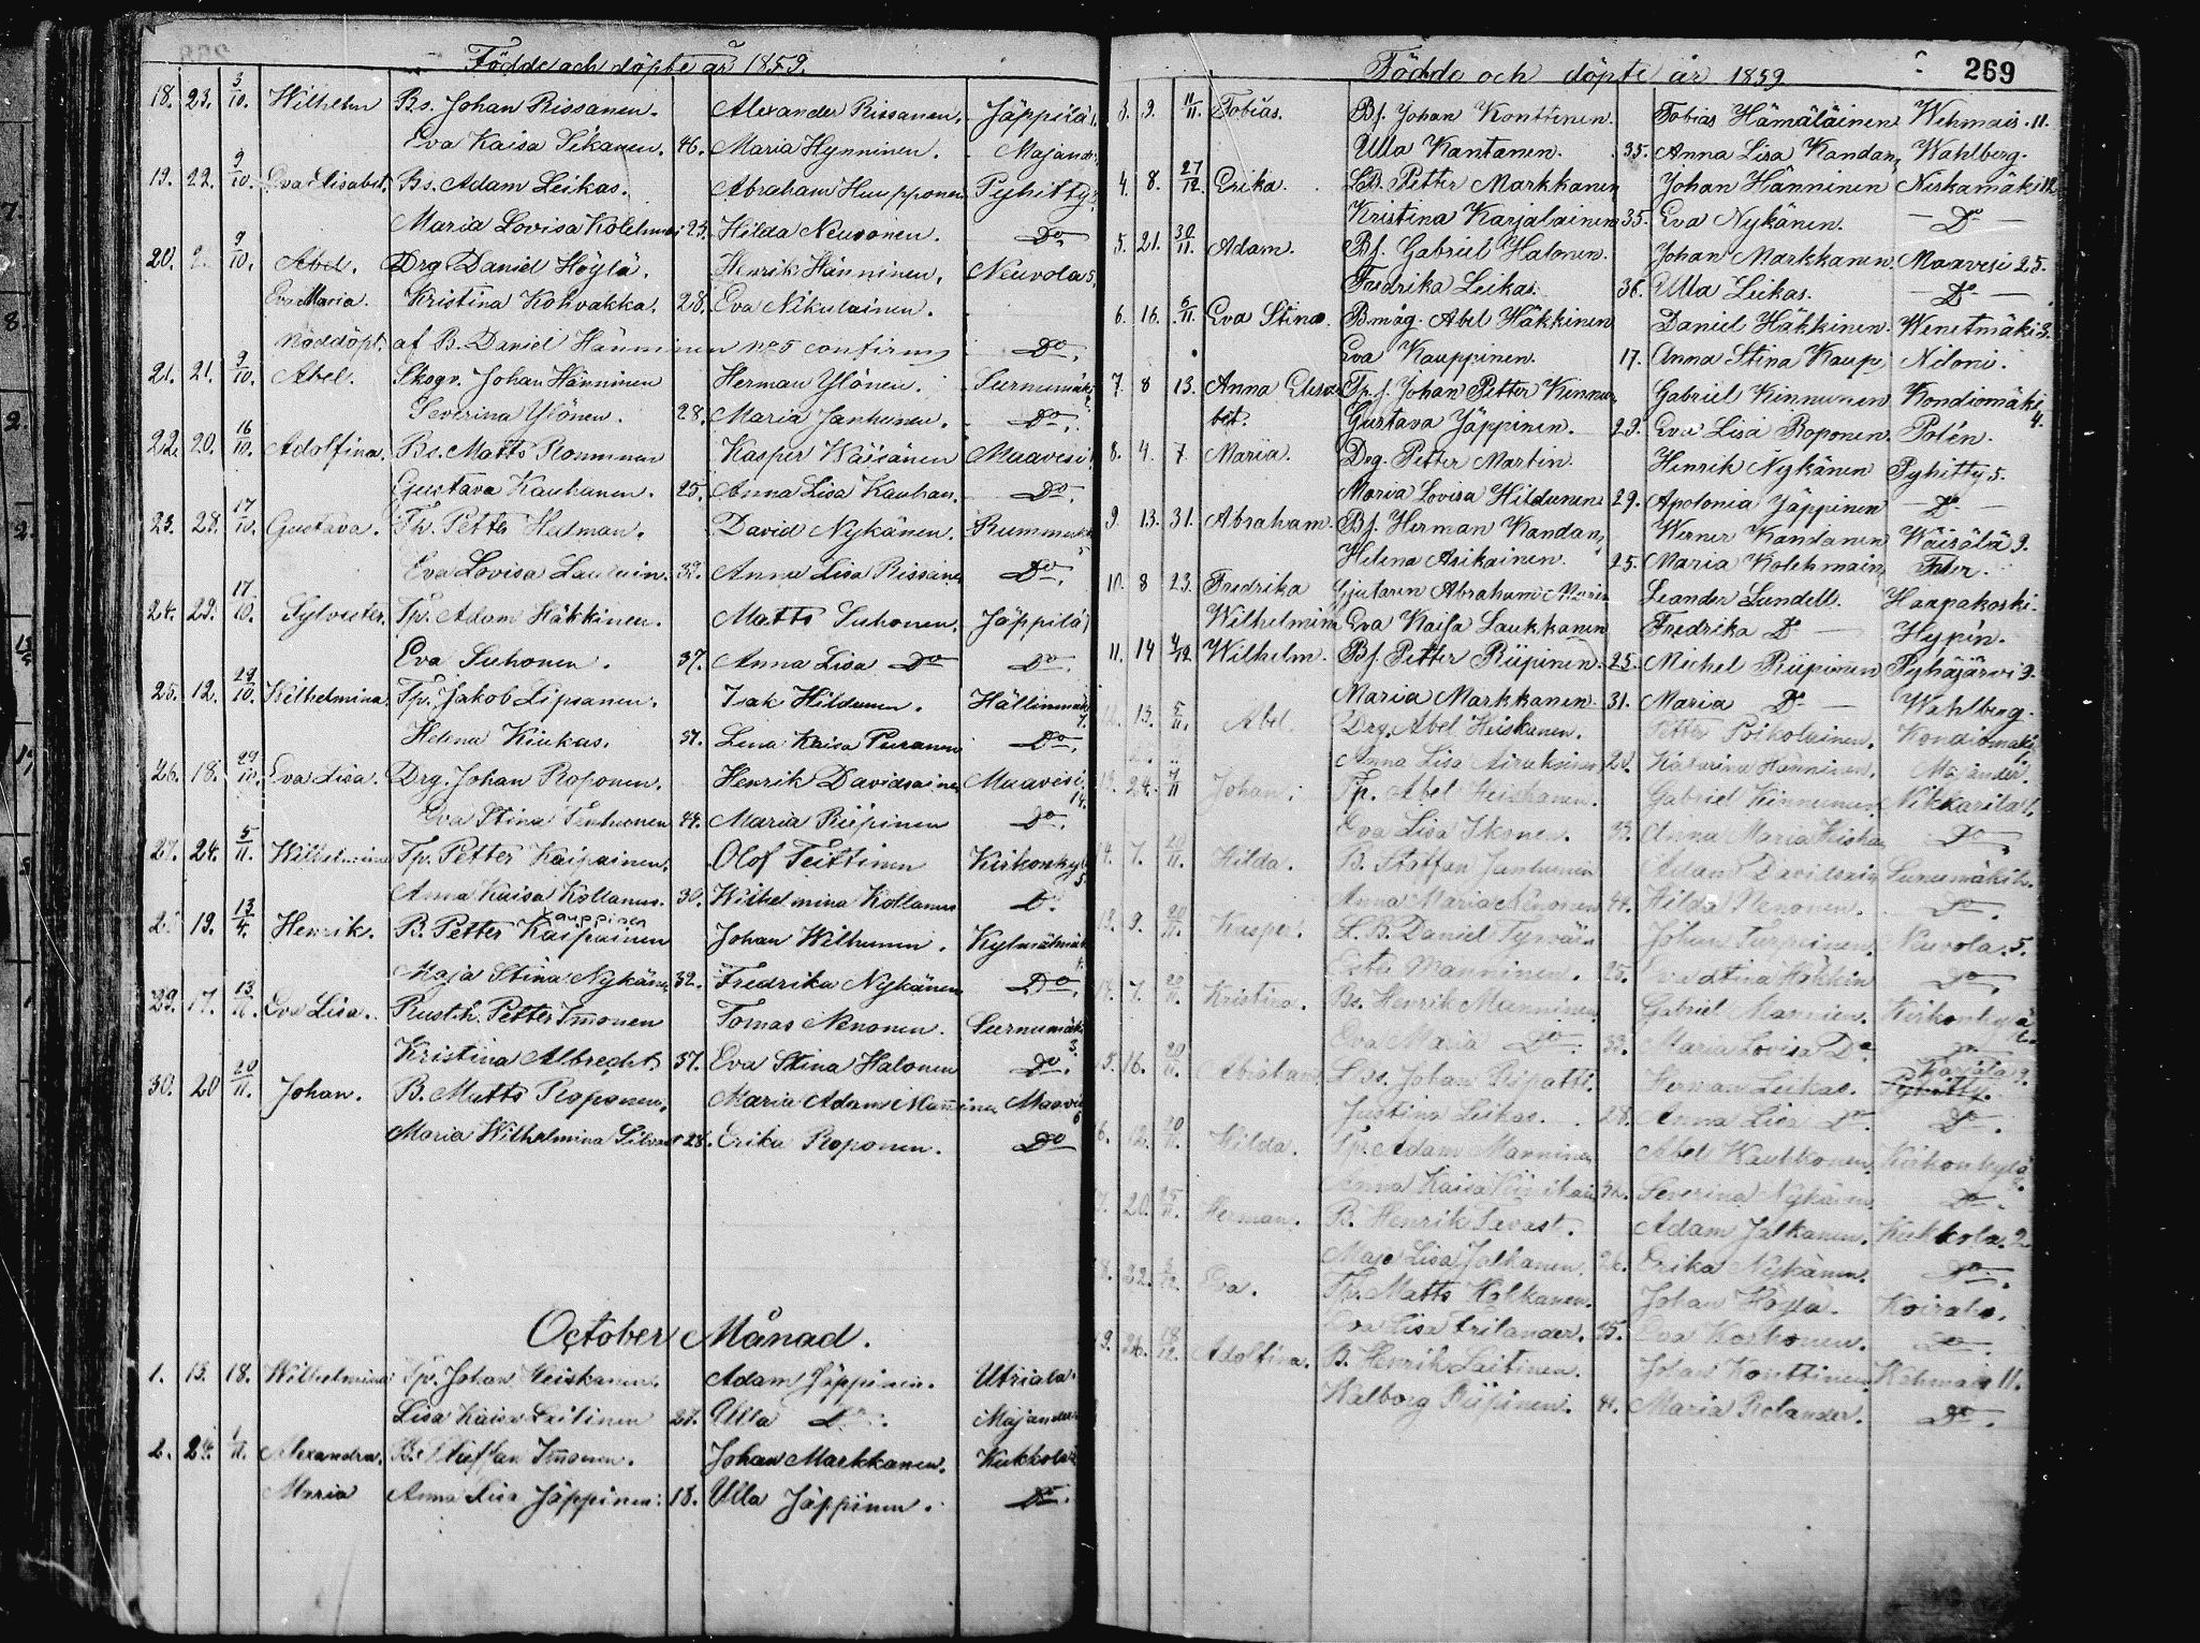 Födde och döpte år 1859.
18. 23. 3/10. Wilhelm Bs. Johan Rissanen. Alexander Rissanen. Jäppilä 1.
Eva Kaisa Sikanen. 46. Maria Hynninen. Majander
19. 22. 9/10. Eva Elisabet. Bs. Adam Leikas. Abraham Hupponen Pyhitty
Maria Lovisa Kolehmai 23. Hilda Neuvonen. Do
20. 2. 9/10. Abel. Drg Daniel Höylä. Henrik Hänninen. Neuvola 5.
Eva Maria. Kristina Kohvakka. 28. Eva Nikulainen.
Nöddöpt. af B. Daniel Hänninen no 5 confirm Do.
21. 21. 9/10. Abel. Skogv. Johan Hänninen Herman Ylönen. Surnumäki
Severina Ylönen. 28. Maria Janhunen. Do.
22. 20. 16/10. Adolfina. Bs. Matts Kommonen Kasper Wäisänen Maavesi
Gustava Kauhanen. 25. Anna Lisa Kauhan. Do.
23. 28. 17/10. Gustava. Th. Petter Hedman. David Nykänen. Rummukk
Eva Lovisa Laurain. 39. Anna Lisa Rissane Do.
24. 29. 17/10. Sylvester. Tp. Adam Häkkinen. Matts Suhonen. Jäppilä
Eva Suhonen. 37. Anna Lisa Do Do.
25. 12. 29/10. Wilhelmina. Tp. Jakob Lipsanen. Isak Hildunen. Hällinmäki 7.
Helena Kiukas. 37. Lena Kaisa Puranen Do.
26. 18. 29/10. Eva Lisa. Drg. Johan Roponen. Henrik Davidsainen Maavesi 14.
Eva Stina Tenhunen 44. Maria Riipinen Do.
27. 24. 5/11. Wilhelmina Tp. Petter Kaipainen. Olof Teittinen Kirkonkylä 5.
Anna Kaisa Kollanus. 30. Wilhelmina Kollanus Do.
Kauppinen
28. 19. 13/4. Henrik. B. Petter Kaipainen Johan Wilhunen. Kylmämäki
Maja Stina Nykänen 32. Fredrika Nykänen Do.
29. 17. 13/11. Eva Lisa. Rusth. Petter Immonen Tomas Nenonen. Surnumäki 3.
Kristina Albrecht. 37. Eva Stina Halonen Do.
30. 20 20/11. Johan. B. Matts Roponen. Maria Adam Manninen Maavesi
Maria Wilhelmina Silvast 28. Erika Roponen. Do
October Månad.
1. 15. 18. Wilhelmina Tp. Johan Heiskanen. Adam Jäppinen. Utriala.
Lisa Kaisa Laitinen 27. Ulla Do. Majander
2. 24. 1/11. Alexandra. B. Staffan Immonen. Johan Markkanen. Kukkola
Maria Anna Lisa Jäppinen: 18. Ulla Jäppinen. Do.
Födde och döpte år 1859 269
3. 9. 11/11. Tobias. Bf. Johan Konttinen. Tobias Hämäläinen Wehmais. 11.
Ulla Kantanen. 35. Anna Lisa Kandan. Wahlberg.
4. 8. 27/12. Erika. LB. Petter Markkanen Johan Hänninen Niskamäki 12
Kristina Karjalainen 35. Eva Nykänen. Do
5. 21. 30/11. Adam. Bf. Gabriel Halonen. Johan Markkanen. Maavesi 25.
Fredrika Leikas. 36. Ulla Leikas. Do
6. 16. 6/11. Eva Stina. Bmåg. Abel Häkkinen Daniel Häkkinen. Wenetmäki 3.
Eva Kauppinen. 17. Anna Stina Kaup Nidoni.
7. 8 13. Anna Elisa Tp.s. Johan Petter Kinnun Gabriel Kinnunen Kondiomäki 4.
bet. Gustava Jäppinen. 29. Eva Lisa Roponen. Polén.
8. 4. 7. Maria. Drg. Petter Martin. Henrik Nykänen Pyhitty 5.
Maria Lovisa Hildunen 29. Apolonia Jäppinen Do
9. 13. 31. Abraham. Bf. Herman Kandan. Werner Kantanen Wäisälä 9.
Helena Asikainen. 25. Maria Kolehmain
10. 8 23. Fredrika Gjutaren Abraham Leander Lundell. Haapakoski.
Wilhelmina Eva Kaisa Laukkanen Fredrika Do Hypén.
11. 14 4/12 Wilhelm. Bf. Petter Riipinen. 25. Michel Riipinen Pyhäjärvi 9.
Maria Markkanen. 31. Maria Do Wahlberg.
12. 13. 5/11. Abel. Drg. Abel Heiskanen. Petter Poikolainen. Kondiomäki
Anna Lisa Airaksinen 20. Katarina Hänninen. Majander.
13. 24. 7/11 Johan. Tp. Abel Heiskanen. Gabriel Kinnunen Nikkarila 1.
Eva Lisa Ikonen. 33. Anna Maria Heiska Do.
7. 20/11. Hilda. B. Staffan Janhunen Adam Davidsain Surnumäki
Anna Maria Nenonen 44. Hilda Nenonen. Do.
9. 20/11. Kasper. L.B. Daniel Tyrväin Johan Turpeinen. Neuvola. 5.
Ester Manninen. 25. Eva Stina Häkkin Do.
7. 20/11. Kristina. Bs. Henrik Manninen Gabriel Mannien. Kirkonkylä
Eva Maria Do. 33. Maria Lovisa Do. Do
Karjala 9.
5. 16. 20/11. Abraham Ls. Johan Ripatti. Herman Leikas. Pyhitty.
Justina Leikas. 28. Anna Lisa Do. Do.
6. 12. 20/11. Hilda. Tp. Adam Manninen Abel Kautkonen. Kirkonkylä
Anna Kaisa Severina Nykänen Do.
7. 20. Herman. B. Henrik Sevast. Adam Jalkanen. Kukkola. 2
Maja Lisa Jalkanen. 26. Erika Nykänen. Do.
8. 22. Eva. Th. Matts Hokkanen. Johan Höylä. Koirala.
Eva Lisa Frilander. 35. Eva Korhonen. Do.
9. 26. 18/12. Adolfina. B. Henrik Laitinen. Johan Konttinen. Wehmais 11.
Walborg Riipinen. 41. Maria Relander. Do.